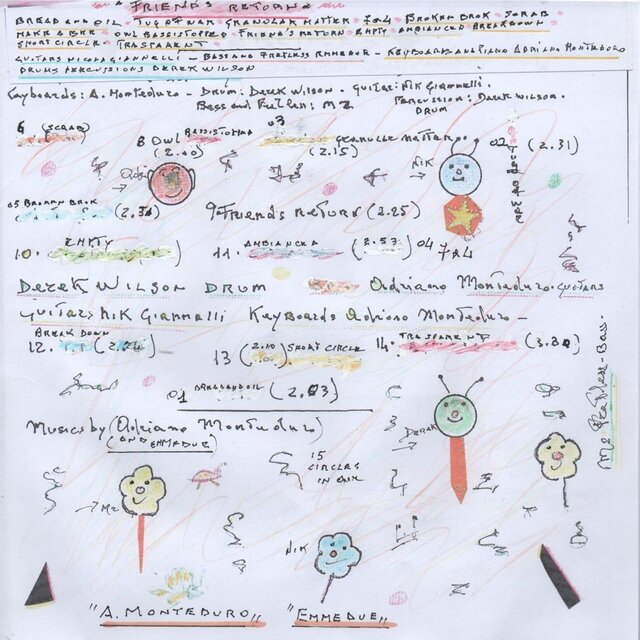 "FRIEND'S RETURN"
BREAD AND OIL - TUG OF WAR GRANULAR MATTER - 7 or 4 BROKEN BROK - SCRAB
MAKE A BEER - OWL BASSISTOPPED - FRIEND'S RETURN - EMPTY - AMBIANCED BREAKDOWN
SHORT CIRCLE - TRASPARENT
GUITARS NICOLA GIANNELLI - BASS AND FRETLESS - KEYBOARDS AND PIANO ADRIANO MONTEDURO
DRUMS PERCUSSIONS DEREK WILSON
Keyboards: A. Monteduro - Drum: Derek Wilson - Guitar: Nik Giannelli.
Bass and Fretless: M2 Percussion: Derek Wilson.
DRUM
6 (SCRAB) 8 Owl BASSISTOPHA (2.00) 03 GRANULAR MATTER (2.15) 02 TUG OF WAR (2.31)
Adri NIK
05 BROKEN BROK (2.34) 9 Friend's Return (2.25)
10. EMPTY 11. AMBIANCHA (2.53) 04 7x4
DEREK WILSON DRUM Adriano Monteduro. GUITARS
GUITARS NIK GIANNALLI Keyboards Adriano Monteduro -
12. BREAK DOWN (2.24) 13 (2.10) SHORT CIRCLE 14. TRASPARENT (3.30)
01 BREADANDOIL (2.03)
Musics by (Adriano Monteduro)
(AND EMMEDUE)
15
CIRCLES
IN ONE
DEREK
M2 Fretless-Bass.
M2
NIK
"A. MONTEDURO" "EMMEDUE"